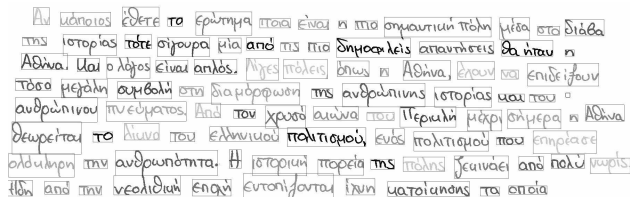 Αν κάποιος έθετε το ερώτημα ποια είναι η πιο σημαντική πόλη μέσα στο διάβα
της ιστορίας τότε σίγουρα μία από τις πιο δημοφιλείς απαντήσεις θα ήταν η
Αθήνα. Και ο λόγος είναι απλός. Λίγες πόλεις όπως η Αθήνα, έχουν να επιδείξουν
τόσο μεγάλη συμβολή στη διαμόρφωση της ανθρώπινης ιστορίας και του
ανθρώπινου πνεύματος. Από τον χρυσό αιώνα του Περικλή μέχρι σήμερα η Αθήνα
θεωρείται το λίκνο του ελληνικού πολιτισμού, ενός πολιτισμού που επηρέασε
ολόκληρη την ανθρωπότητα. Η ιστορική πορεία της πόλης ξεκινάει από πολύ νωρίς.
Ήδη από την νεολιθική εποχή εντοπίζονται ίχνη κατοίκησης τα οποία